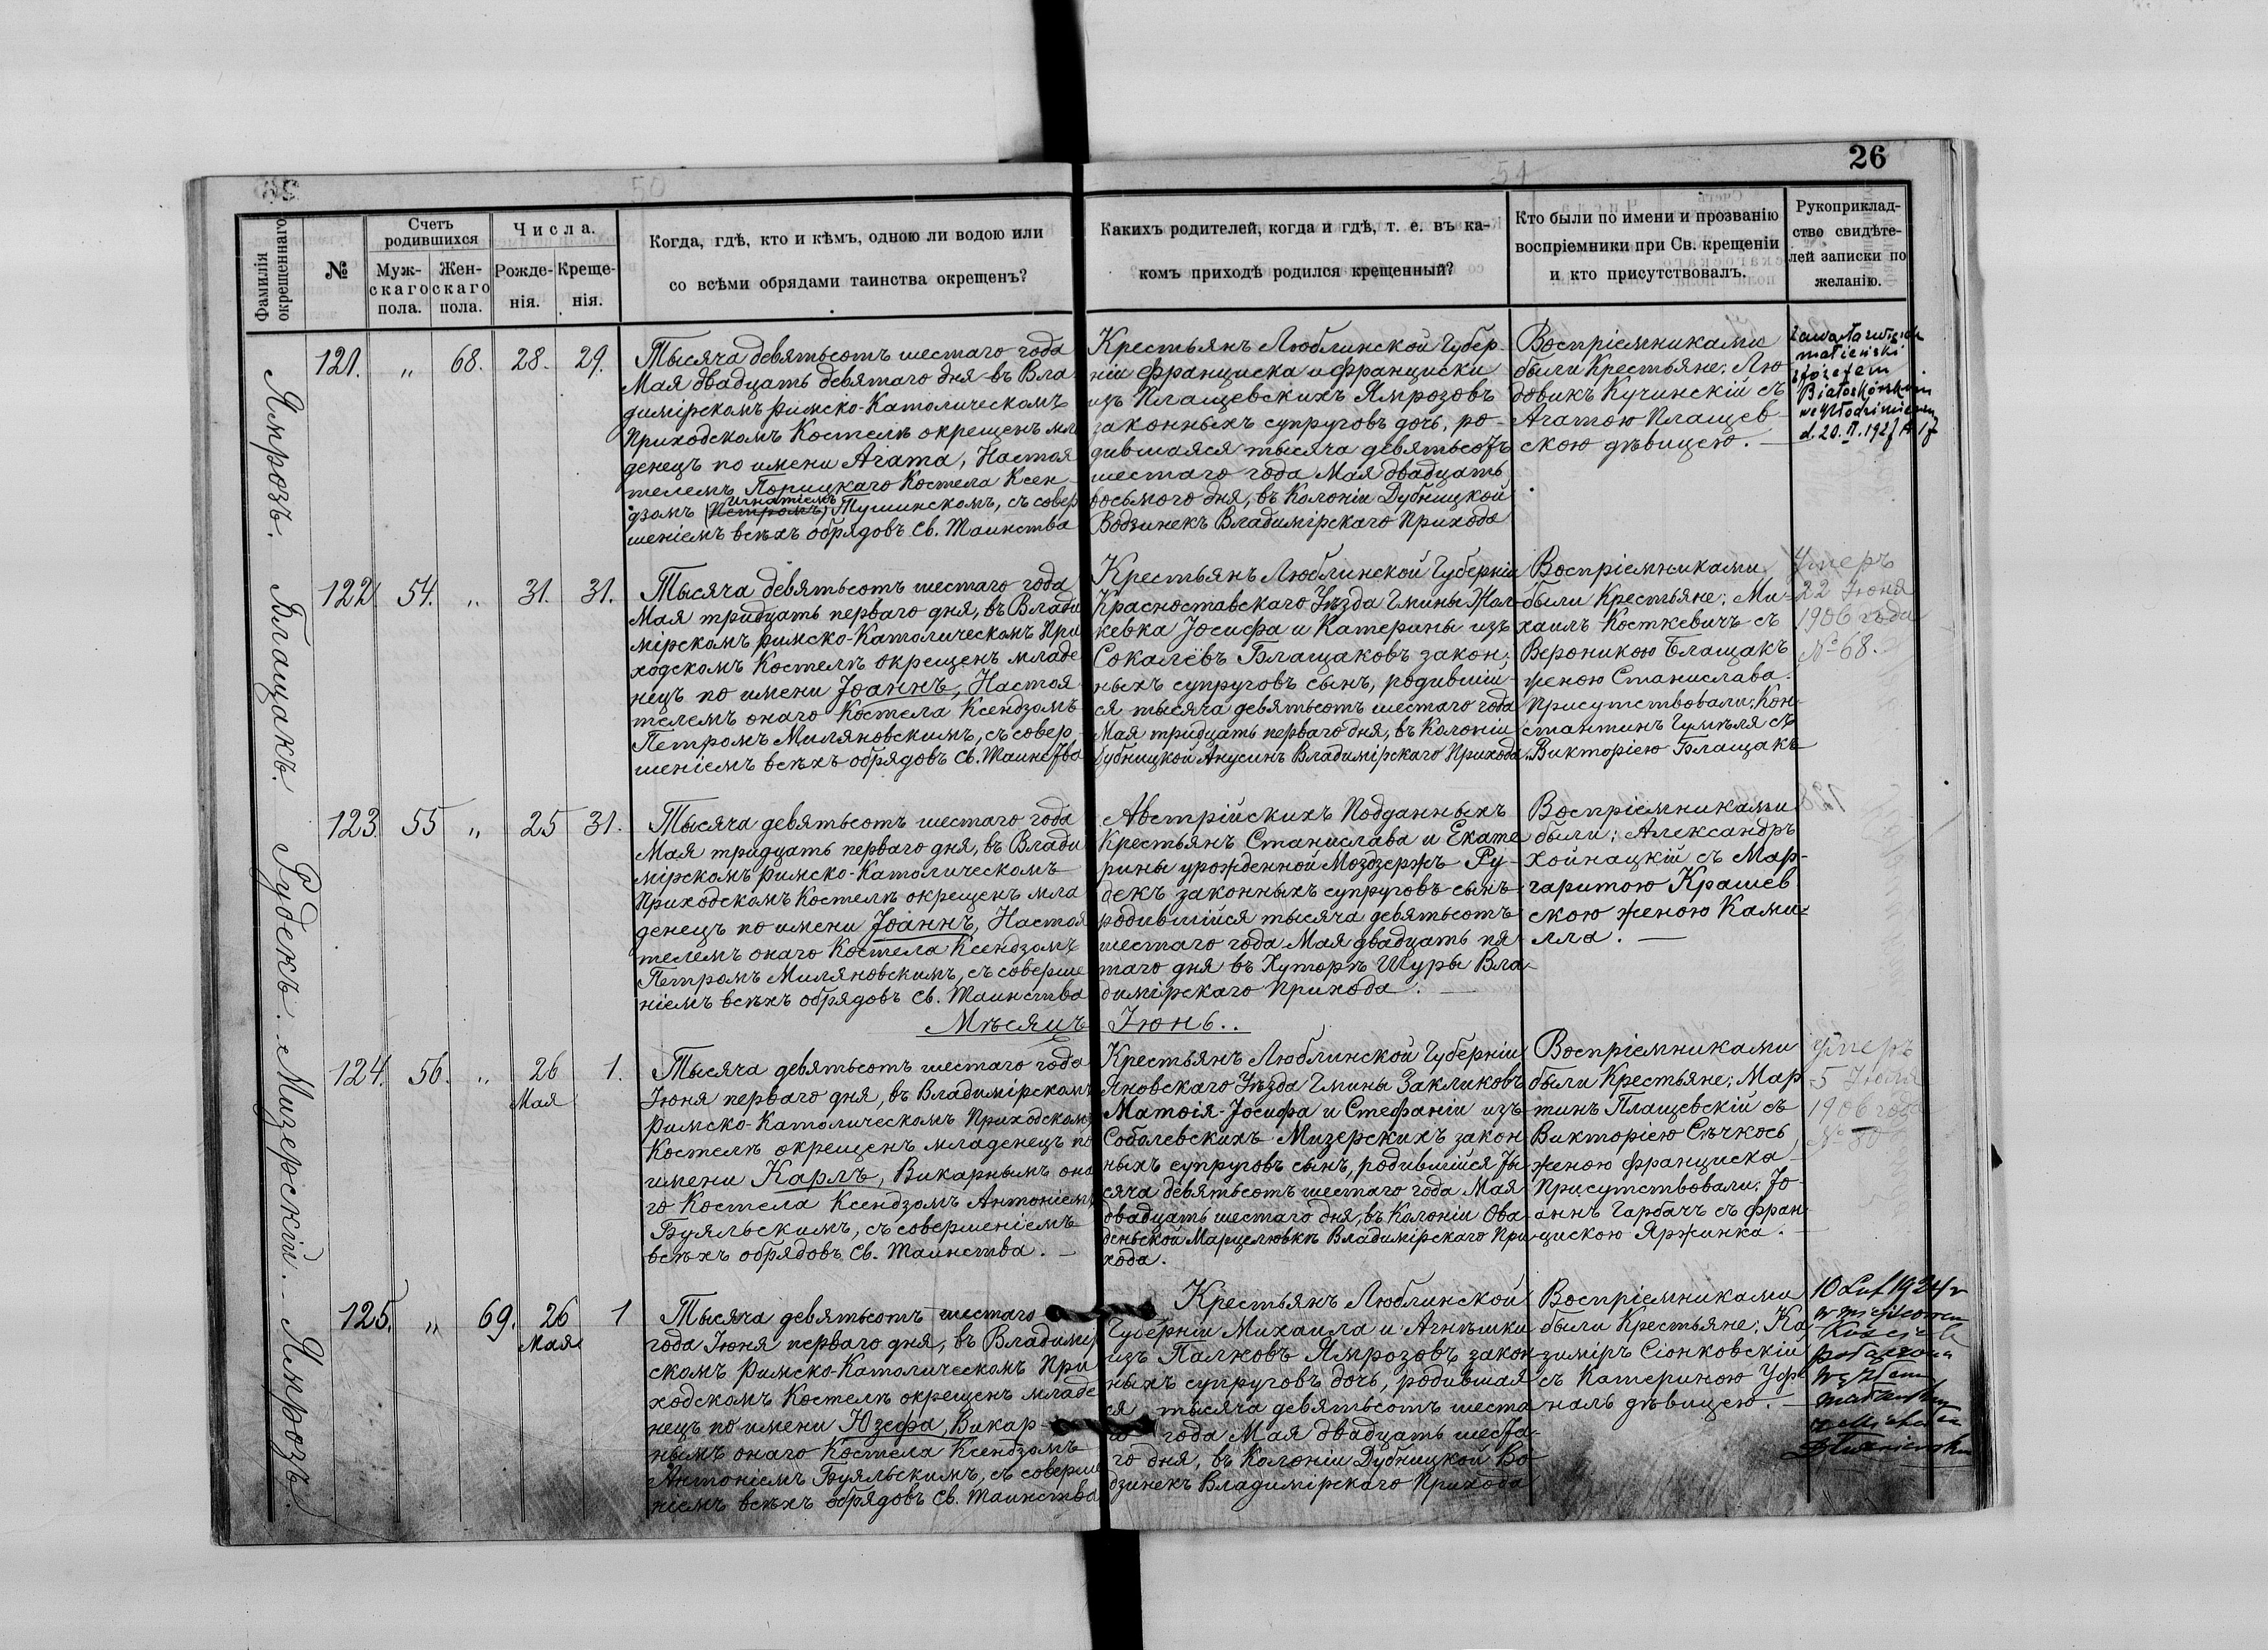 26
50
51
Фамилія окрещеннаго
№
Счетъ родившихся
Муж-
скаго
пола.
Жен-
скаго
пола.
Числа.
Рожде-
нія.
Креще-
нія.
Когда, гдѣ, кто и кѣмъ, одною ли водою или
со всѣми обрядами таинства окрещенъ?
Какихъ родителей, когда и гдѣ, т. е. въ ка-
комъ приходѣ родился крещенный?
Кто были по имени и прозванію
воспріемники при Св. крещеніи
и кто присутствовалъ.
Рукоприклад-
ство свидѣте-
лей записки по
желанію.
Ямрозъ.
121. „ 68. 28. 29.
Тысяча девятьсотъ шестаго года
Мая двадцать девятаго дня въ Вла
димірскомъ Римско-Католическомъ
Приходскомъ Костелѣ окрещенъ мла
денецъ по имени Агата, Настоя
телемъ Порицкаго Костела Ксен-
дзомъ (Петромъ) Игнатіемъ Тушинскомъ, съ совер
шеніемъ всѣхъ обрядовъ Св. Таинства
Крестьянъ Люблинской Губер-
ніи Франциска и Франциски
изъ Плащевскихъ Ямрозовъ
законныхъ супруговъ дочь, ро-
дившаяся тысяча девятьсотъ
шестаго года Мая двадцать
восьмого дня, въ Колоніи Дубницкой
Водзинекъ Владимірскаго Прихода
Воспріемниками
были Крестьяне: Лю
довикъ Кучинскій съ
Агатою Плащев-
скою дѣвицею. —
Zawarła związek
małżeński
z Józefem
Białoskórskim
we Włodzimierzu
d. 20. II. 1927
Блащакъ.
122. 54. „ 31. 31.
Тысяча девятьсотъ шестаго года
Мая тридцать перваго дня, въ Влади
мірскомъ Римско-Католическомъ При
ходскомъ Костелѣ окрещенъ младе
нецъ по имени Іоаннъ, Настоя
телемъ онаго Костела Ксендзомъ
Петромъ Миляновскимъ, съ совер-
шеніемъ всѣхъ обрядовъ Св. Таинства
Крестьянъ Люблинской Губерніи
Красноставскаго Уѣзда Гмины Жол-
кевка Іосифа и Катерины изъ
Сокалёвъ Блащаковъ закон-
ныхъ супруговъ сынъ, родившій-
ся тысяча девятьсотъ шестаго года
Мая тридцать перваго дня, въ Колоніи
Дубницкой Анусинъ Владимірскаго Прихода.
Воспріемниками
были Крестьяне: Ми-
хаилъ Косткевичъ съ
Вероникою Блащакъ
женою Станислава.
Присутствовали: Кон-
стантинъ Гумѣля съ
Викторіею Блащакъ
Умеръ
22 Іюня
1906 года
№ 68.
Рудекъ.
123. 55 „ 25 31.
Тысяча девятьсотъ шестаго года
Мая тридцать перваго дня, въ Влади
мірскомъ Римско-Католическомъ
Приходскомъ Костелѣ окрещенъ мла
денецъ по имени Іоаннъ, Настоя
телемъ онаго Костела Ксендзомъ
Петромъ Миляновскимъ, съ соверше
ніемъ всѣхъ обрядовъ Св. Таинства
Австрійскихъ Подданныхъ
Крестьянъ Станислава и Екате
рины урожденной Моздзержъ Ру-
декъ законныхъ супруговъ сынъ
родившійся тысяча девятьсотъ
шестаго года Мая двадцать пя-
таго дня въ Хуторѣ Щуры Вла-
димірскаго Прихода. —
Воспріемниками
были: Александръ
Хойнацкій съ Мар-
гаритою Крашев
скою женою Ками-
лла. —
Мѣсяцъ Іюнь..
Мизерскій.
124. 56. „ 26 Мая 1.
Тысяча девятьсотъ шестаго года
Іюня перваго дня, въ Владимірскомъ
Римско-Католическомъ Приходскомъ
Костелѣ окрещенъ младенецъ по
имени Карлъ, Викарнымъ она
го Костела Ксендзомъ Антоніемъ
Буяльскимъ, съ совершеніемъ
всѣхъ обрядовъ Св. Таинства. —
Крестьянъ Люблинской Губерніи
Яновскаго Уѣзда Гмины Закликовъ
Матѳія-Іосифа и Стефаніи изъ
Соболевскихъ Мизерскихъ закон
ныхъ супруговъ сынъ, родившійся ты
сяча девятьсотъ шестаго года Мая
двадцать шестаго дня, въ Колоніи Ова
деньской Марцелювкѣ Владимірскаго При
хода.
Воспріемниками
были Крестьяне: Мар
тинъ Плащевскій съ
Викторіею Сѣчкось,
женою Франциска —
Присутствовали: Іо-
аннъ Гарбачъ съ Фран
цискою Яржинка. —
Умеръ
5 Іюля
1906 года
№ 80
Ямрозъ.
125. „ 69. 26 Мая 1
Тысяча девятьсотъ шестаго
года Іюня перваго дня, въ Владимір
скомъ Римско-Католическомъ При
ходскомъ Костелѣ окрещенъ младе
нецъ по имени Юзефа, Викар
нымъ онаго Костела Ксендзомъ
Антоніемъ Буяльскимъ, съ соверше
ніемъ всѣхъ обрядовъ Св. Таинства
Крестьянъ Люблинской
Губерніи Михаила и Агнѣшки
изъ Палковъ Ямрозовъ закон
ныхъ супруговъ дочь, родившая
ся тысяча девятьсотъ шеста
го года Мая двадцать шеста-
го дня, въ Колоніи Дубницкой Во
дзинекъ Владимірскаго Прихода
Воспріемниками
были Крестьяне: Ка-
зиміръ Сіонковскій
съ Катериною Уфі
наль дѣвицею. —
10 Lut 1924 r